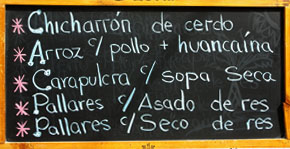 * Chicharrón de cerdo
* Arroz c/ pollo + huancaína
* Carapulcra c/ sopa Seca
* Pallares c/ Asado de res
* Pallares c/ Seco de res